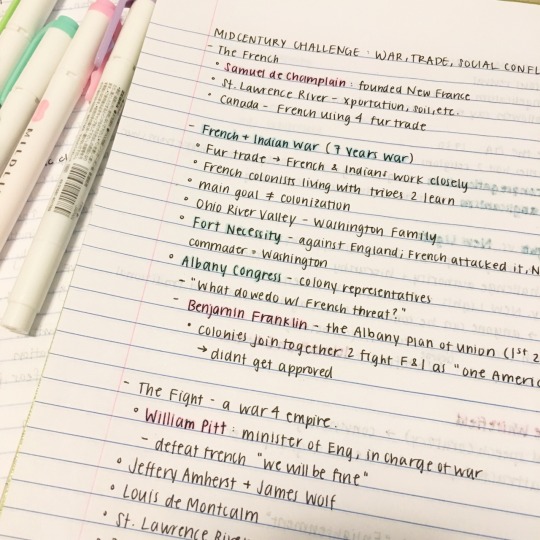 MIDCENTURY CHALLENGE: WAR, TRADE, SOCIAL CONFL
- The French
• Samuel de Champlain: founded New France
• St. Lawrence River - xportation, soil, etc.
• Canada - French using 4 fur trade
- French + Indian War (7 Years War)
• Fur trade → French & Indians work closely
• French colonists living with tribes 2 learn
• main goal ≠ colonization
• Ohio River Valley - Washington Family
• Fort Necessity - against England; French attacked it, N
commader = Washington
• Albany Congress - colony representatives
- "What do we do w/ French threat?"
- Benjamin Franklin - the Albany Plan of Union (1st 2
• colonies join together 2 fight F & I as "one Americ
→ didnt get approved
- The Fight - a war 4 empire.
• William Pitt: minister of Eng, in charge of war
- defeat french "we will be fine"
• Jeffery Amherst + James Wolf
• Louis de Montcalm
• St. Lawrence River